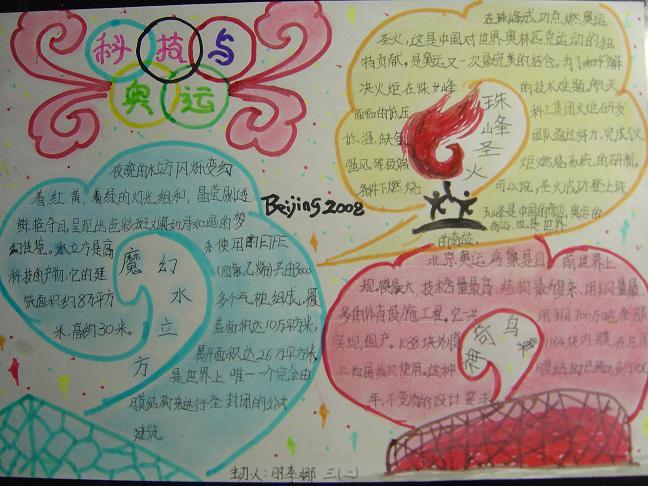 科技与
奥运
在珠峰成功点燃奥运
圣火,这是中国对世界奥林匹克运动的独
特贡献,是奥运又一次最完美的结合。为了
决火炬在珠峰 的技术难题,航天
面临的低压 科工集团火炬研发
低温、缺氧 团队通过努力,完成了火
强风等极端 炬燃烧系统的研制,
条件下燃烧 可以说,圣火成功登上珠
是中国的奇迹,奥运的
的奇迹, 奇迹,也是世界
珠峰圣火
Beijing 2008
夜晚的水立方闪烁变幻
着红、黄、着绿的灯光组和,晶莹剔透
鲜艳夺目,呈现出色彩斑斓如诗如画的梦
幻佳境。水立方是高 科使用的ETFE
科技的产物,它的建 (四氟乙烯)共由3000
筑面积约8万平方 多个气枕组成。覆
米,高约30米。 盖面积达10万平方米,
展开面积达26万平方米
是世界上唯一一个完全由
膜结构来进行全封闭的公共
建筑
魔幻水立方
北京奥运鸟巢是目前世界上
规模最大、技术含量最高、结构最 用钢量最
多的体育设施工程。它 用钢 万吨全部
实现国产。1038块外膜 1164块内膜在
上 使用。这种 膜结构已
年不变 的设计要求
神奇鸟巢
主办人: 李娜 三(二)